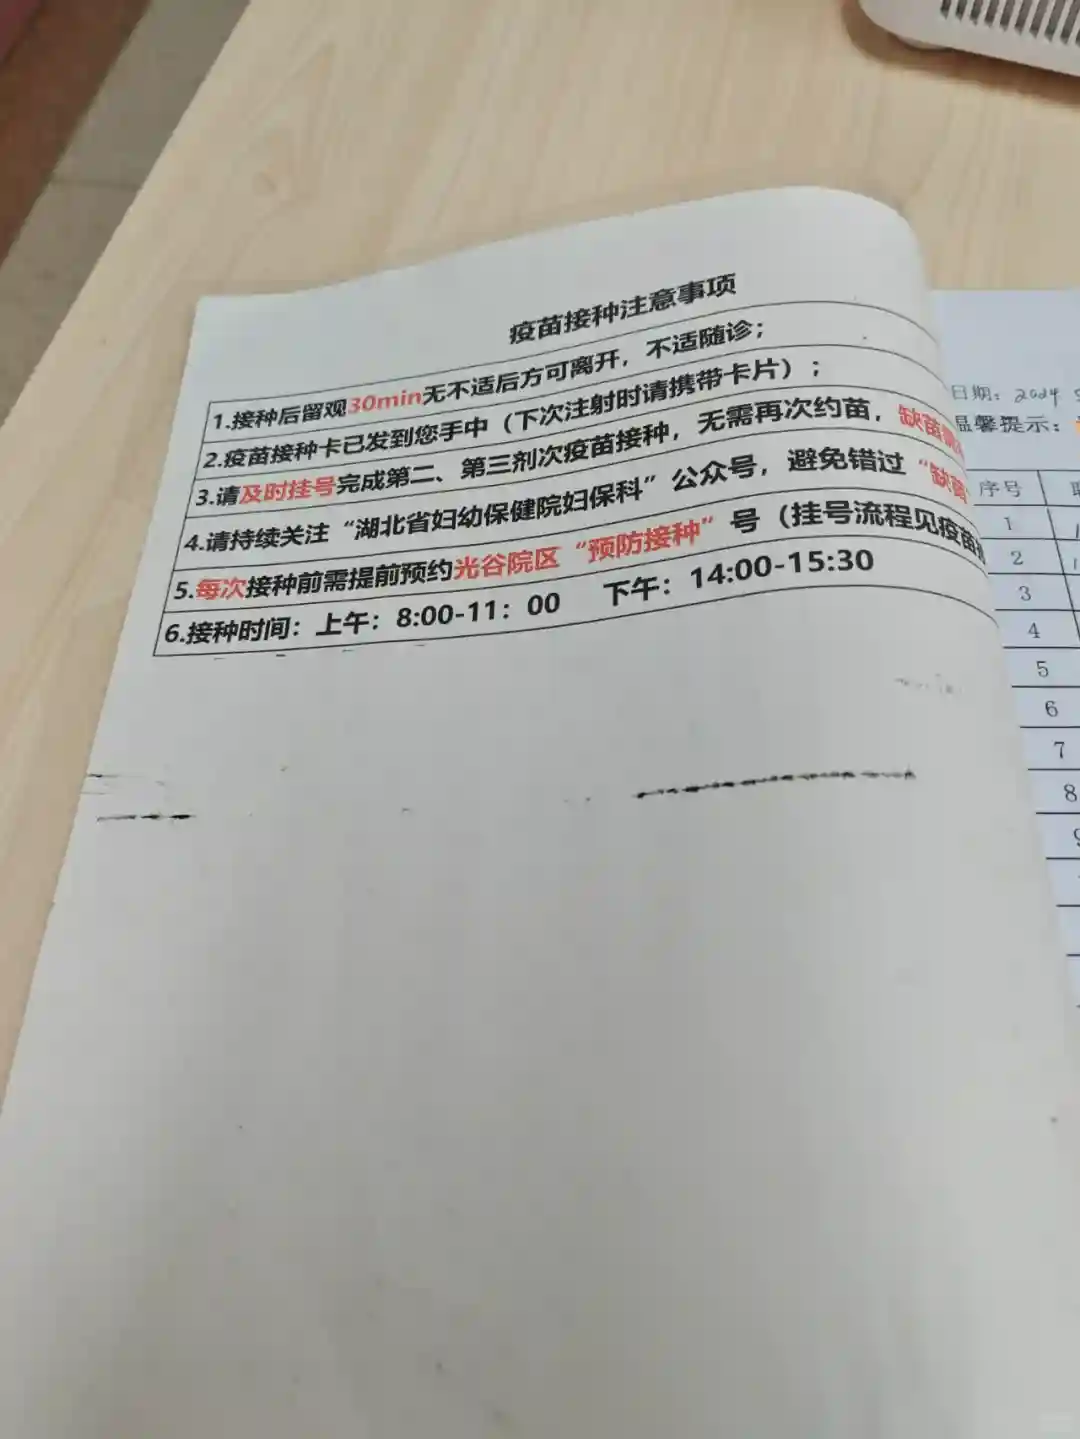 疫苗接种注意事项
1.接种后留观30min无不适后方可离开，不适随诊；
2.疫苗接种卡已发到您手中（下次注射时请携带卡片）；
3.请及时挂号完成第二、第三剂次疫苗接种，无需再次约苗，缺苗
4.请持续关注“湖北省妇幼保健院妇保科”公众号，避免错过“缺苗
5.每次接种前需提前预约光谷院区“预防接种”号（挂号流程见疫苗
6.接种时间：上午：8:00-11：00 下午：14:00-15:30
日期：2024
温馨提示：
序号
1
2
3
4
5
6
7
8
9